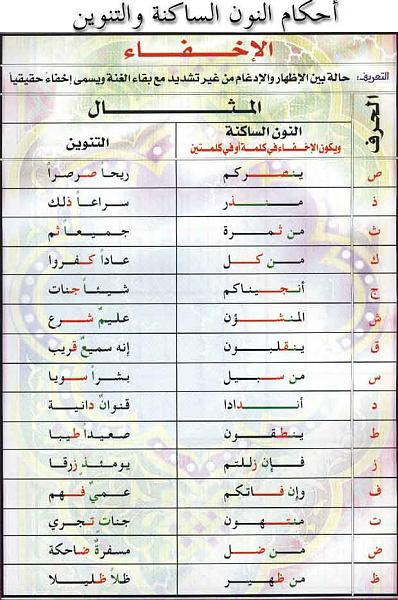 أحكام النون الساكنة والتنوين
الإخفاء
التعريف: حالة بين الإظهار والإدغام من غير تشديد مع بقاء الغنة ويسمى إخفاءً حقيقياً
الحرف المثال
النون الساكنة التنوين
ويكون الإخفاء في كلمة أو في كلمتين
ص ينصركم ريحا صرصراً
ذ منذر سراعاً ذلك
ث من ثمرة جميعاً ثم
ك من كل عاداً كفروا
ج أنجيناكم شيئاً جنات
ش المنشؤن عليمٌ شرع
ق ينقلبون إنه سميعٌ قريب
س من سبيل بشراً سويا
د أندادا قنوانٌ دانية
ط ينطقون صعيداً طيبا
ز فإن زللتم يومئذٍ زرقا
ف وإن فاتكم عميٌ فهم
ت منتهون جنات تجري
ض من ضل مسفرةٌ ضاحكة
ظ من ظهير ظلاً ظليلا